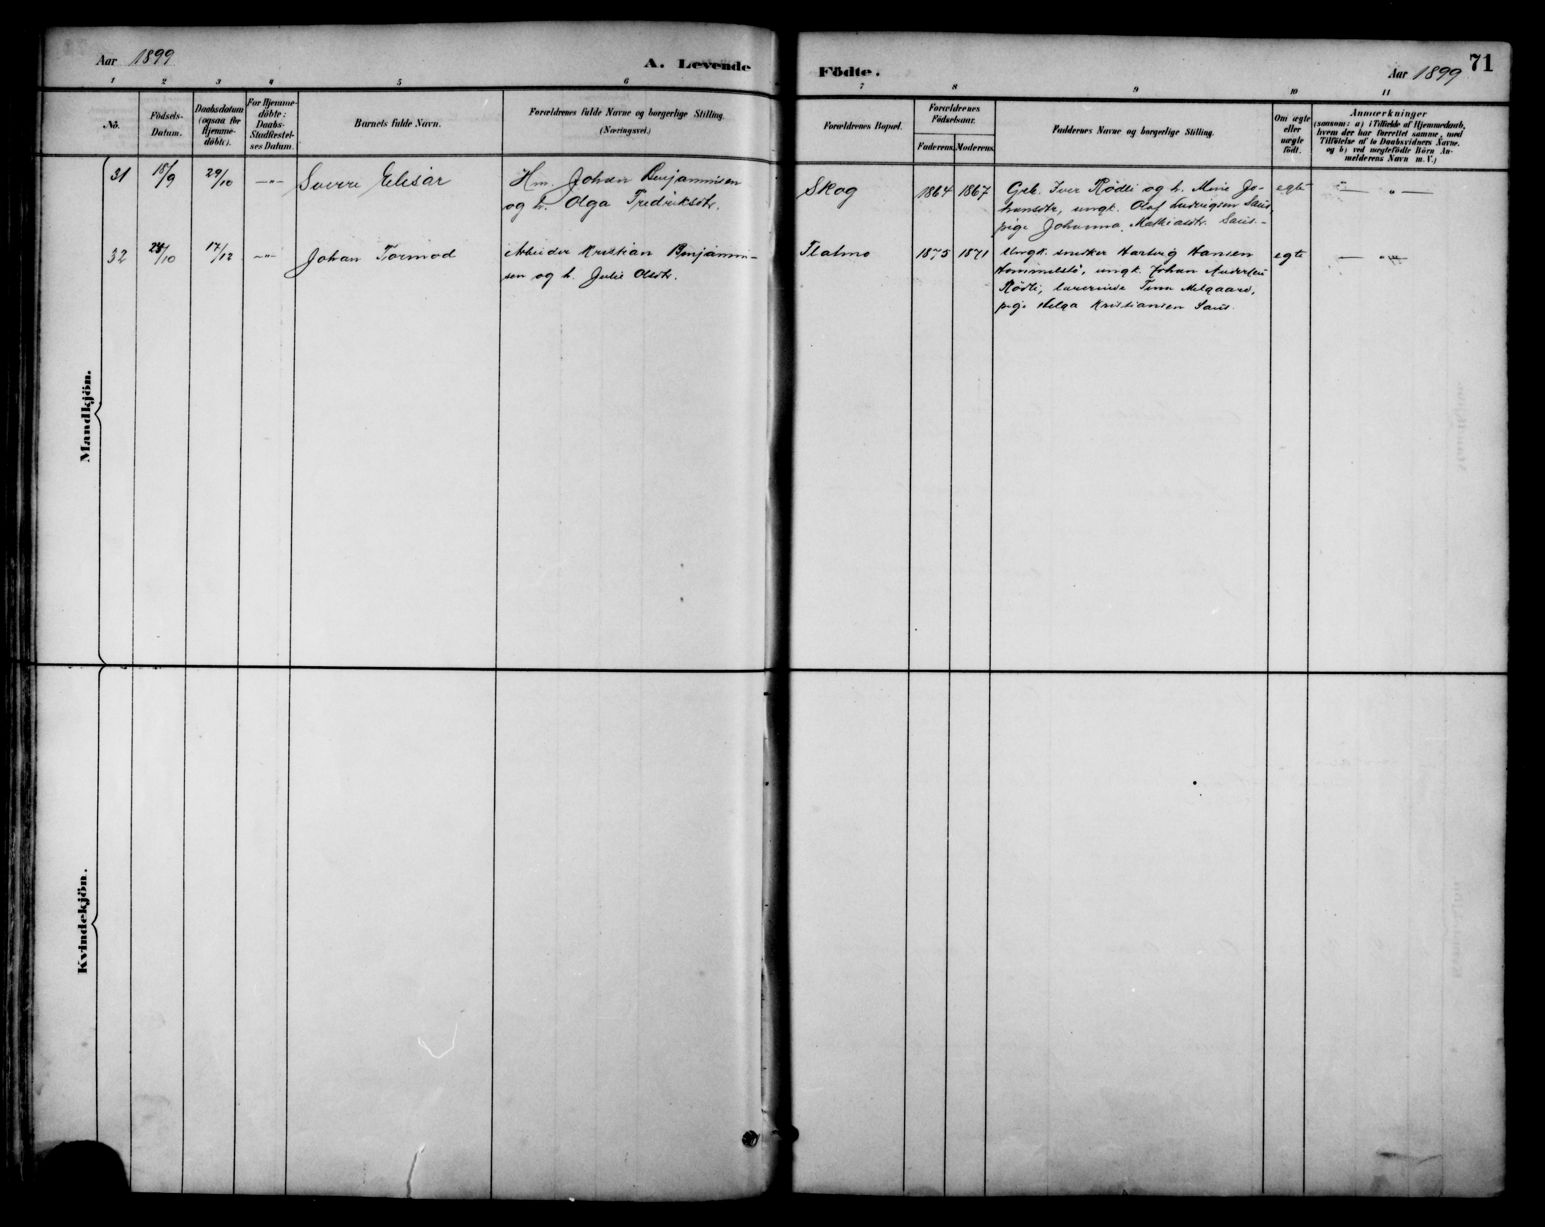 Aar 1899
A. Levende
Födte.
Aar 1899
71
1 2 3 4 5 6 7 8 9 10 11
No.
Födsels-
Datum.
Daabsdatum
(ogsaa for
Hjemme-
døbte).
For Hjemme-
döbte:
Daabs-
Stadfæstel-
ses Datum.
Barnets fulde Navn.
Forældrenes fulde Navne og borgerlige Stilling.
(Næringsvei.)
Forældrenes Bopæl.
Forældrenes
Födselsaar.
Faderens. Moderens.
Faddernes Navne og borgerlige Stilling.
Om ægte
eller
uægte
født.
Anmærkninger
(saasom: a) i Tilfælde af Hjemmedaab,
hvem der har forrettet samme, med
Tilføielse af to Daabsvidners Navne.
og b) ved uægtefødte Börn An-
melderens Navn m. V.)
Mandkjön.
31 18/9 29/10 —„— Sverre Elisar
Hm. Johan Benjaminsen
og h. Olga Fredriksdtr.
Skog 1864 1867
Gsb. Iver Rödli og h. Mine Jo-
hansdtr, ungk. Olaf Ludvigsen Saus,
pige Johanna Mathiasdtr. Saus-
egte —„— „ —
32 24/10 17/12 —„— Johan Tormod
Arbeider Kristian Benjamin-
sen og h. Julie Olsdtr.
Flatmo 1875 1871
Ungk. snedker Hartvig Hansen
ungk. Johan Andersen
Rödli, lærerinde Melgaard,
pige Helga Kristiansen Saus.
egte — „ —
Kvindekjön.